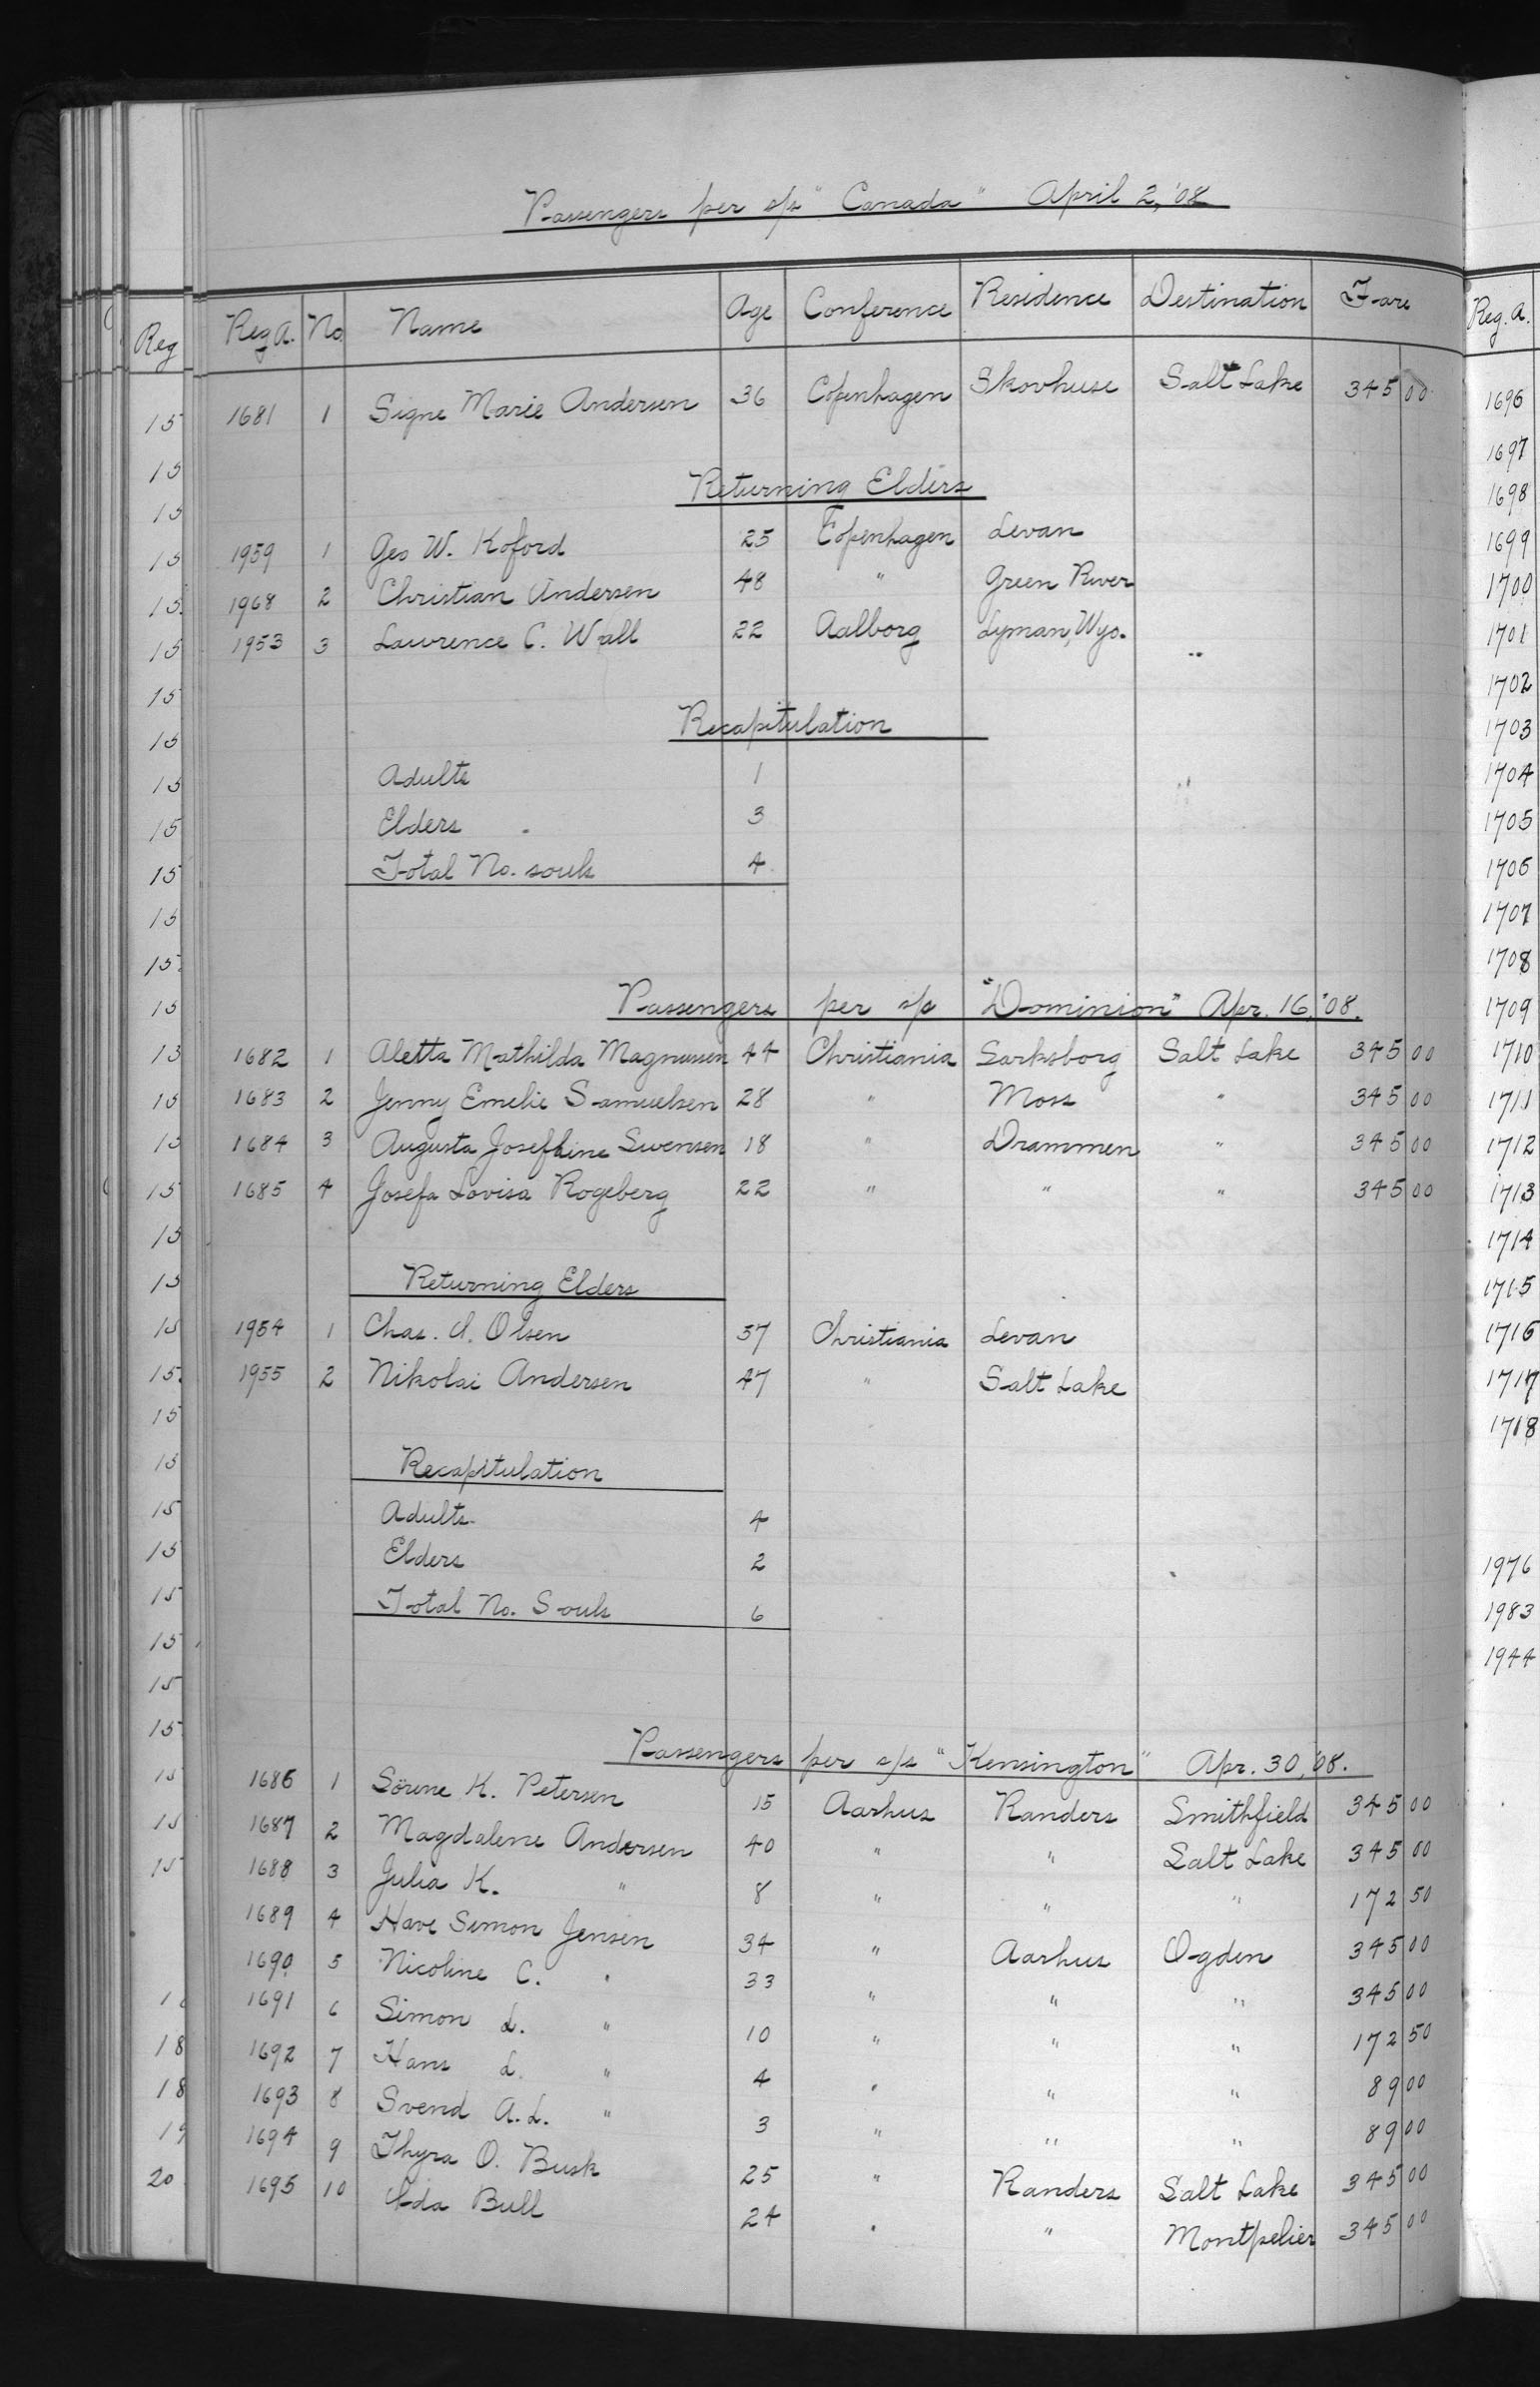 Passengers per s/s "Canada" April 2, '08
Reg A. No. Name Age Conference Residence Destination Fare
1681 1 Signe Marie Andersen 36 Copenhagen Skovhuse Salt Lake 345 00
Returning Elders
1959 1 Geo W. Koford 25 Copenhagen Levan
1968 2 Christian Andersen 48 " Green River
1953 3 Lawrence C. Wall 22 Aalborg Lyman, Wyo.
Recapitulation
Adults 1
Elders 3
Total No. souls 4
Passengers per s/s "Dominion" Apr. 16, '08.
1682 1 Aletta Mathilda Magnussen 44 Christiania Sarksborg Salt Lake 345 00
1683 2 Jenny Emelie Samuelsen 28 " Moss " 345 00
1684 3 Augusta Josefhine Swensen 18 " Drammen " 345 00
1685 4 Josefa Lovisa Rogeberg 22 " " " 345 00
Returning Elders
1954 1 Chas. A. Olsen 57 Christiania Levan
1955 2 Nikolai Andersen 47 " Salt Lake
Recapitulation
Adults 4
Elders 2
Total No. Souls 6
Passengers per s/s "Kensington" Apr. 30, '08.
1686 1 Sörine K. Petersen 15 Aarhus Randers Smithfield 345 00
1687 2 Magdalene Andersen 40 " " Salt Lake 345 00
1688 3 Julia K. " 8 " " " 172 50
1689 4 Have Simon Jensen 34 " Aarhus Ogden 345 00
1690 5 Nicoline C. " 33 " " " 345 00
1691 6 Simon L. " 10 " " " 172 50
1692 7 Hans L. " 4 " " " 89 00
1693 8 Svend A. L. " 3 " " " 89 00
1694 9 Thyra O. Busk 25 " Randers Salt Lake 345 00
1695 10 Ida Bull 24 " " Montpelier 345 00
Reg
15
15
15
15
15
15
15
15
15
15
15
15
15
15
15
15
15
15
15
15
15
15
15
15
15
15
15
15
15
15
15
15
18
18
20
Reg. A.
1696
1697
1698
1699
1700
1701
1702
1703
1704
1705
1706
1707
1708
1709
1710
1711
1712
1713
1714
1715
1716
1717
1718
1976
1983
1944